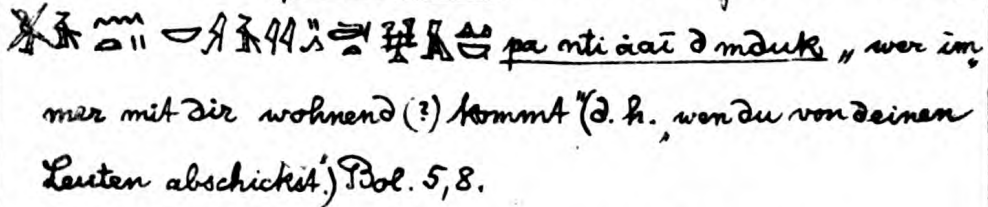 pa nti àaī d mduk „wer im-
mer mit dir wohnend (?) kommt“ (d. h. „wen du von deinen
Leuten abschickst“.) Bol. 5,8.